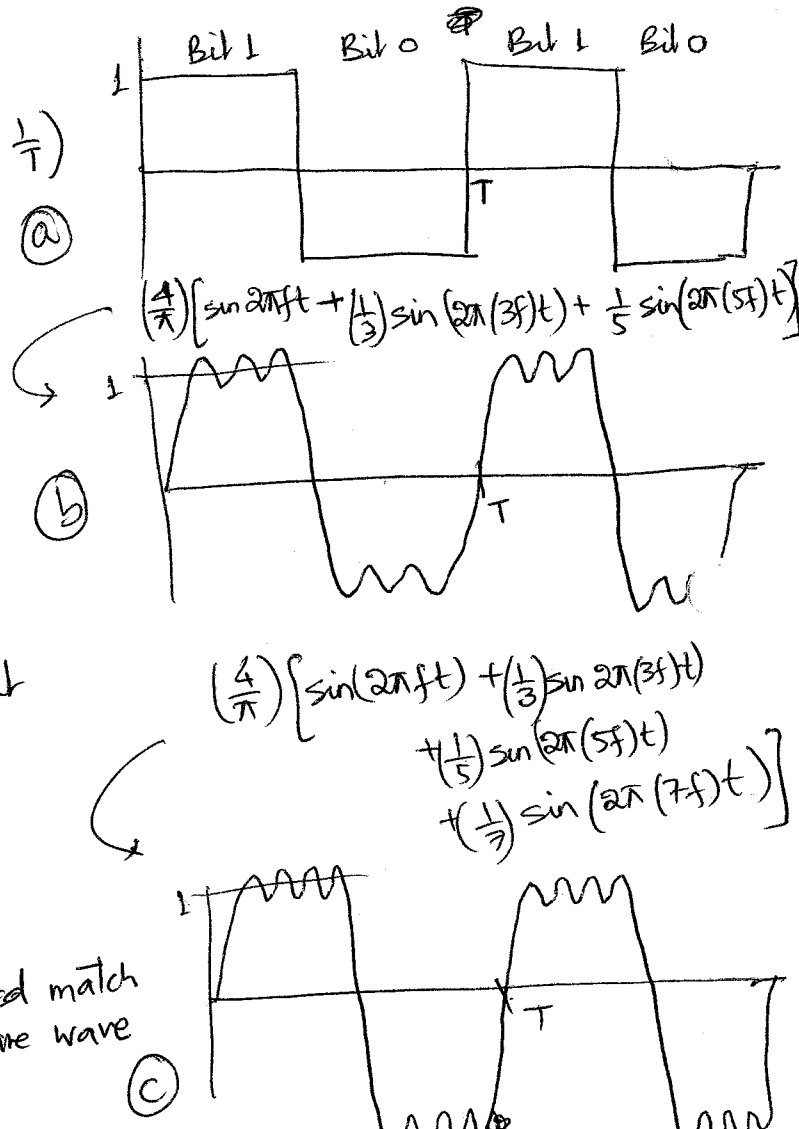 Bit 1 Bit 0 Bit 1 Bit 0
1
1/T)
T
(a)
(4/π)[sin 2πft + (1/3) sin (2π(3f)t) + 1/5 sin(2π(5f)t)]
1
(b)
T
(4/π)[sin(2πft) + (1/3) sin 2π(3f)t)
+(1/5) sin(2π(5f)t)
+(1/7) sin (2π(7f)t)]
1
match
wave
T
(c)